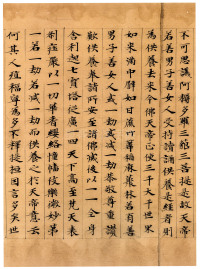 不可思議阿耨多羅三藐三菩提是故天帝
若善男子善女人受持讀誦供養是經者則
為供養去來今佛天帝正使三千大千世界
如來滿中譬如甘蔗竹葦稻麻叢林若有善
男子善女人或一劫或減一劫恭敬尊重讚
歎供養奉諸所安至諸佛滅後以一一全身
舍利起七寶塔縱廣一四天下高至梵天表
刹莊嚴以一切華香瓔珞幢幡伎樂微妙第
一若一劫若減一劫而供養之於天帝意云
何其人殖福寧為多不釋提桓因言多矣世